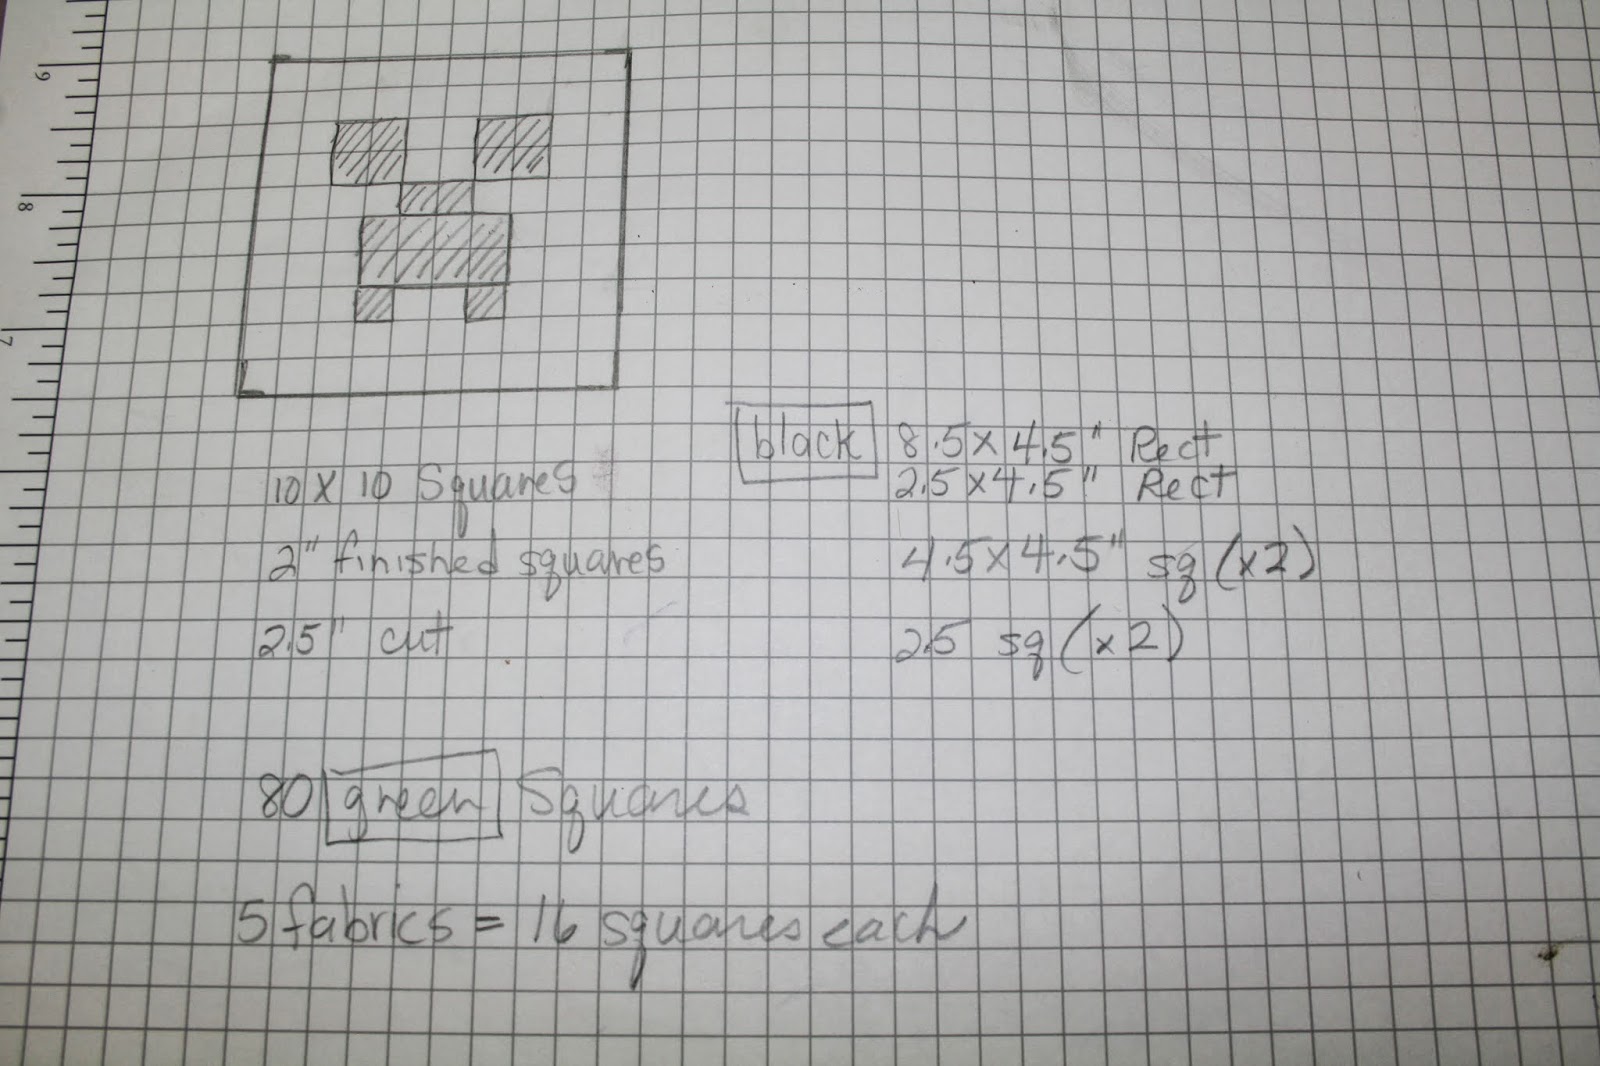 9
8
7
10 X 10 Squares
2" finished squares
2.5" cut
black 8.5 x 4.5" Rect
2.5 x 4.5" Rect
4.5 x 4.5" sq (x2)
2.5 sq (x2)
80 green Squares
5 fabrics = 16 squares each